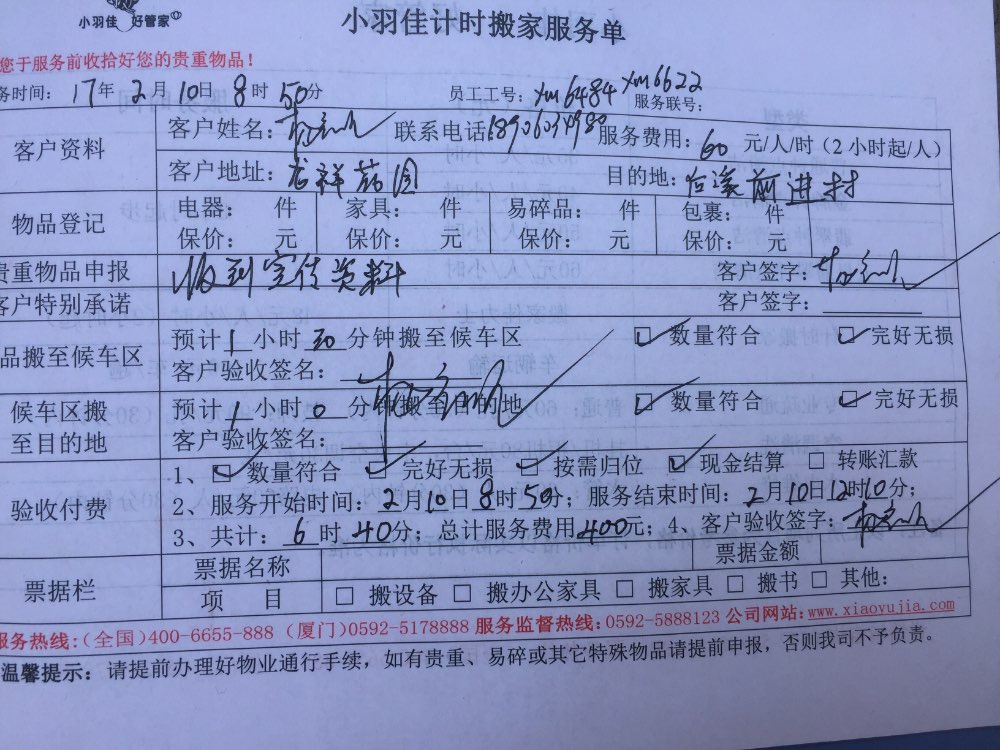 小羽佳 好管家
小羽佳计时搬家服务单
您于服务前收拾好您的贵重物品！
务时间： 17年 2月 10日 8时 50分 员工工号： xm6484 xm6622
服务联号：
客户资料 客户姓名： 联系电话: 服务费用： 60 元/人/时（2 小时起/人）
客户地址： 古祥苑园 目的地： 前进村
物品登记 电器： 件 家具： 件 易碎品： 件 包裹： 件
保价： 元 保价： 元 保价： 元 保价： 元
贵重物品申报 收到宣传资料 客户签字：
客户特别承诺 客户签字：
品搬至候车区 预计 1 小时 30 分钟搬至候车区 ☑ 数量符合 ☑ 完好无损
客户验收签名：
候车区搬至目的地 预计 1 小时 0 分钟搬至目的地 ☑ 数量符合 ☑ 完好无损
客户验收签名：
验收付费 1、☑ 数量符合 ☑ 完好无损 ☑ 按需归位 ☑ 现金结算 □ 转账汇款
2、服务开始时间：2月10日8时50分；服务结束时间：2月10日12时10分；
3、共计： 6 时 40分；总计服务费用400元；4、客户验收签字：
票据栏 票据名称 票据金额
项 目 □ 搬设备 □ 搬办公家具 □ 搬家具 □ 搬书 □ 其他：
服务热线：(全国)400-6655-888 (厦门)0592-5178888 服务监督热线：0592-5888123 公司网站：www.xiaoyujia.com
温馨提示：请提前办理好物业通行手续，如有贵重、易碎或其它特殊物品请提前申报，否则我司不予负责。